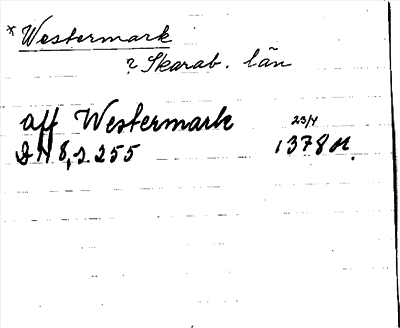 * Westermark
? Skarab. län
aff Westermark 23/4
DN 8, s. 255 1378 Or.